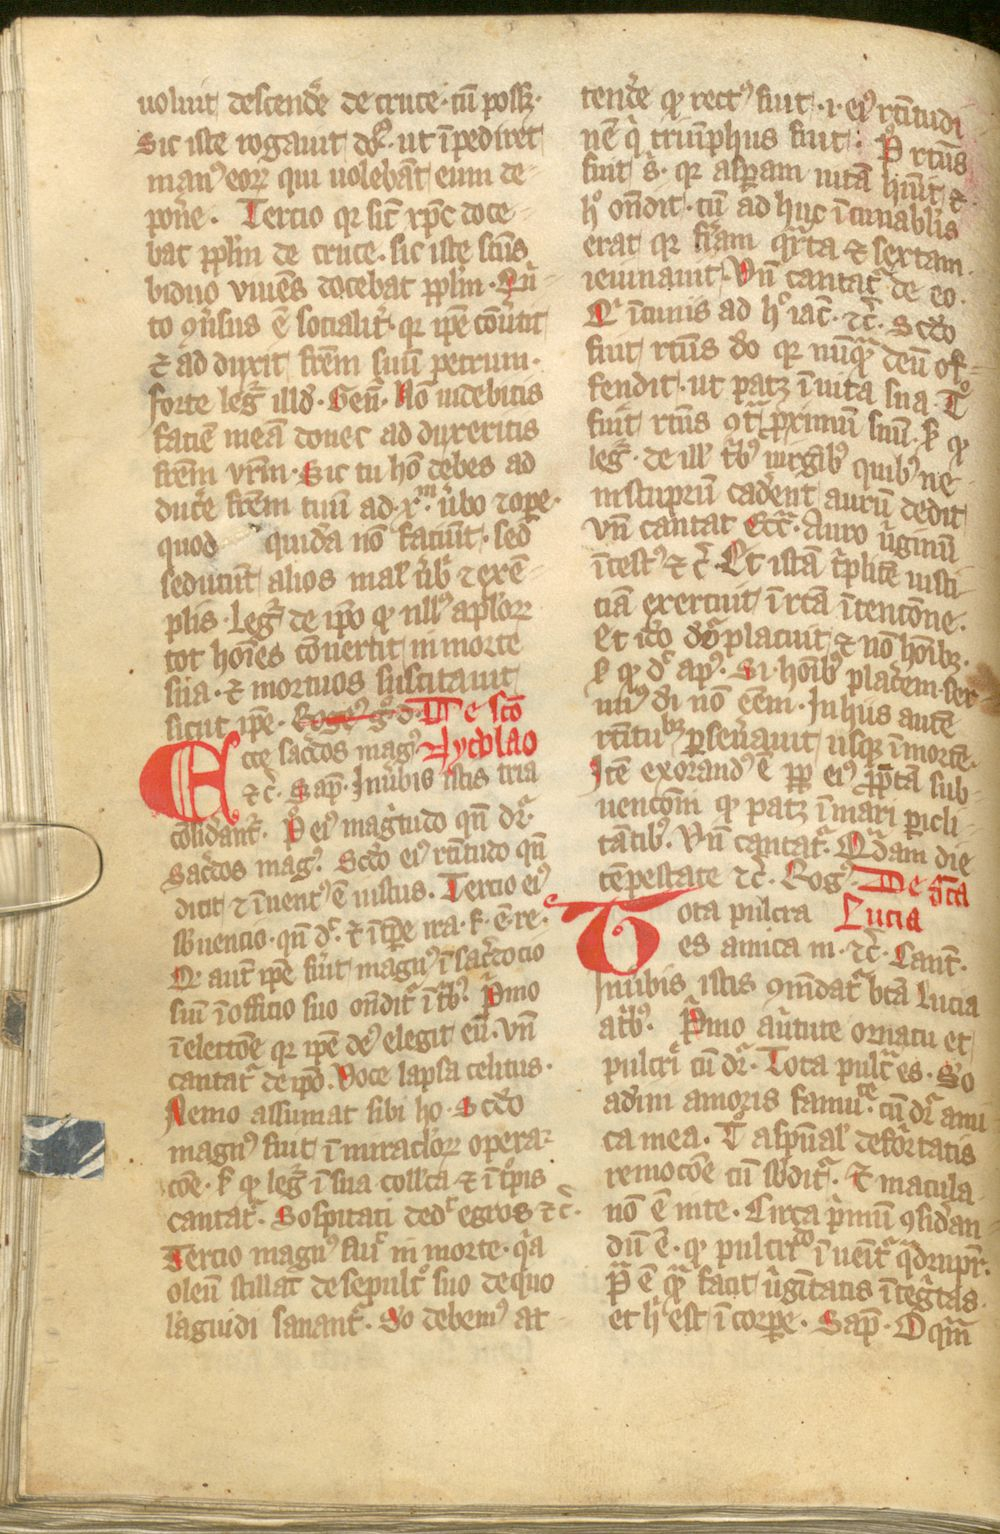 uoluit descendē de cruce · cū poss&
Sic iste rogauit dm̄ · ut īpediret
manꝰ eoꝝ qui uolebāt eum de
pon̄e . Tercio qꝛ sic̄ xp̄c doce
bat pplm̄ de cruce · sic iste scūs
biduo viuēs docebat pplm̄ · Qr̄
to ꝯuersus ē socialit̄ · qꝛ ip̄e cōuertit
⁊ ad duxit frēm suū petrum ·
forte leḡ illd̄ · Gen̄ · Nō uidebitis
faciē meā donec ad duxeritis
frēm vr̄m · Sic tu hō debes ad
ducē frēm tuū ad · x̄ᵐ ūbo ⁊ ope ·
quod quidā nō faciūt · sed
seducūt alios mal̄ ūb̄ ⁊ exē
plis · Leḡ de ip̄o ꝙ nllꝰ aplōꝝ
tot hoīes cōuertit in morte
sua · ⁊ mortuos suscitauit
sicut ip̄e · Rogꝰ g̊ d̄ · De scō
Nycolao
Ecce sac̄dos magꝰ
⁊c̄ · Sap̄ · In ūbis istis tria
ꝯsidānt̄ · P̊ eiꝰ maḡtudo qn̄ dr̄
Sac̄dos magꝰ Scd̄o eiꝰ rc̄itudo qn̄
dicit ⁊ īuentꝰ ē iustus . Tercio eiꝰ
sb̄uencio · qn̄ dr̄ · ⁊ ī tp̄e ira · f · ē · re ·
Qꝛ aut̄ ip̄e fūit magnꝰ ī sac̄docio
siū ī officio suo ondit̄ ī tbꝰ · P̄mo
ī elect̄ōe qꝛ ip̄e deꝰ elegit eū · vn̄
cantat̄ de ip̄o · Voce lapsa celitus ·
Nemo assumat sibi ho · Scd̄o
magnꝰ fuit ī miraclōꝝ opera
cōe · f ꝙ leḡ ī sua coll̄ca ⁊ ī tp̄is
cantat̄ . Sospitati ded̄ egros ⁊c̄ ·
Tercio magnꝰ fuit in morte · q̄a
oleū stillat de sepulc̊ suo de quo
lāguidi sanant̄ · So debemꝰ at
tendē ꝙ rectꝰ fuit · i · eiꝰ rc̄itudi
nē q̄ truīphus fuit : P̊ rc̄us
fuit s̄ · qꝛ asp̄am uitā hūit ⁊
h̊ ondit · cū ad huc ī cunabl̄is
erat qꝛ fr̄iam q̄rta ⁊ sextam
ieiunauit · Vn̄ cantat̄ de eo ·
Q̄ ī cunis ad h̊ iac̄ · ⁊c̄ . Scd̄o
fuit rc̄us do qꝛ nūq̄ deū of
fendit · ut patꝫ ī uita sua T̊
fuit rc̄us ꝯt̄ p̄ximū suū · f ꝙ
leḡ · de ill̄ t̄bꝰ uirgibꝰ quibꝰ ne
in stuprū cad̄ent aurū dedit
vn̄ cantat Ecc̄a · Auro ūginū
īcestꝰ ⁊ c̄ · Et istā t̄plicē iusti
ciā exercuit ī rc̄ā ītencōne ·
et ic̄o do placuit ⁊ nō hoībꝫ ·
f ꝙ d̄ apꝰ · Si hoībꝰ plac̄em ser
uuꝰ di nō ēem · In huius autē
rc̄itubꝫ p̄seūauit usqꝫ ī mortē ·
Itē exorandꝰ ē pp̄ eiꝰ p̄p̄tā sub
uencōm ꝙ patꝫ ī mari p̄icli
tātibꝰ · Vn̄ cantat̄ · Q̄dam die
tēpestate ⁊c̄ · Rogꝰ · De sc̄a
Lucia
Tota pulcra
es amica m · ⁊c̄ · Cant̄ ·
In ūbis istis ꝯmdat̄ bt̄ā Lucia
a tbꝰ · P̄mo a ūtute ornatu et
pulcri cū dr̄ · Tota pulc̄ es · So
adim amoris famuᵗᵉ cū dr̄ ami
ca mea · T̊ a spūal̄ deformitatis
remocōe cū sb̄dit̄ · Et macula
nō ē in te · Circa p̄mū ꝯsid̄an
dū ē · ꝙ pulcrᵈᵒ ī uēit̄ q̄drupr̄ ·
P̄ ē q̄ facit ūgītatis īteḡtas ·
et h̊ est ī corpe · Sap̄ · O q̄m